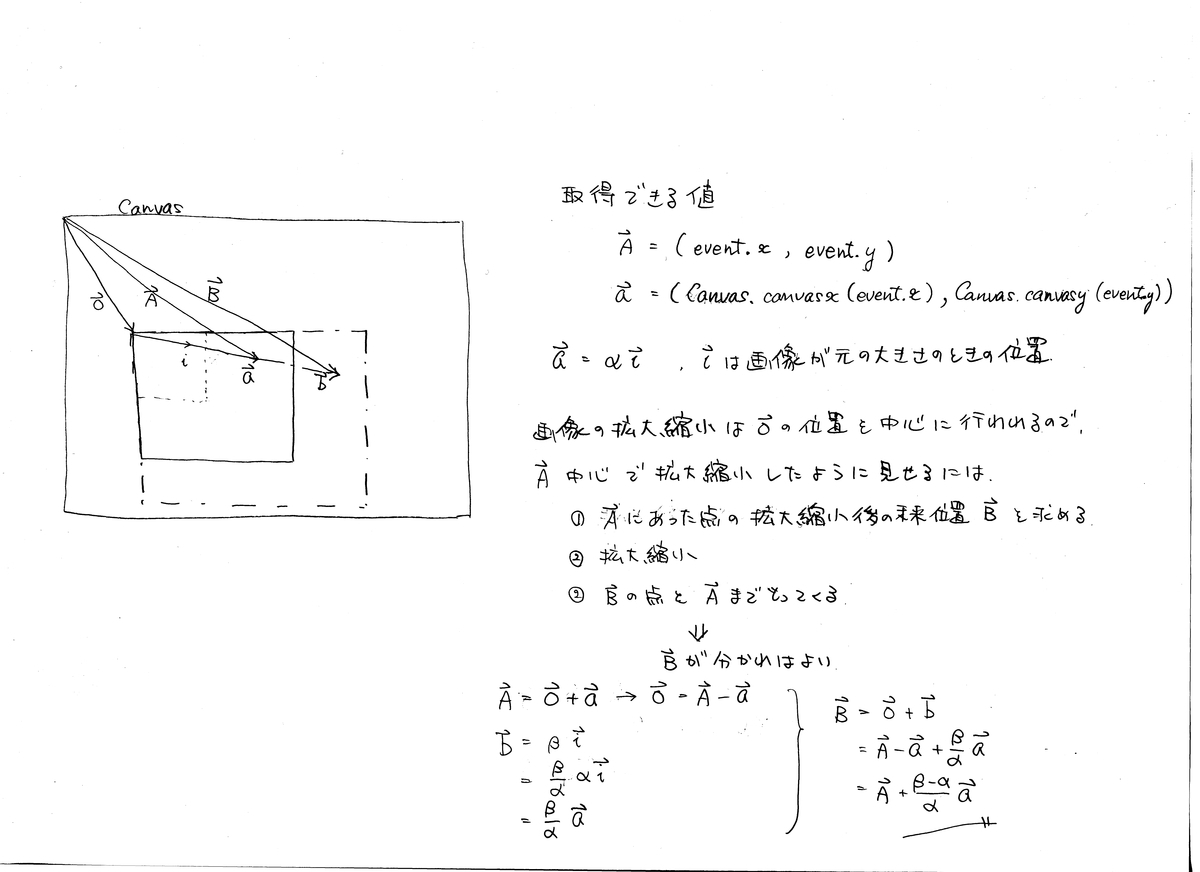 Canvas
O⃗
A⃗
B⃗
i⃗
a⃗
b⃗
取得できる値
A⃗ = ( event.x , event.y )
a⃗ = ( Canvas. canvasx (event.x) , Canvas. canvasy (event.y))
a⃗ = α i⃗ , i⃗ は画像が元の大きさのときの位置.
画像の拡大縮小は O⃗ の位置を中心に行われるので,
A⃗ 中心で拡大縮小したように見せるには.
① A⃗ にあった点の拡大縮小後の未来位置 B⃗ を求める.
② 拡大縮小
② B⃗ の点を A⃗ までもってくる.
⇓
B⃗ が分かればよい.
A⃗ = O⃗ + a⃗ → O⃗ = A⃗ − a⃗
b⃗ = β i⃗
= β/α α i⃗
= β/α a⃗
B⃗ = O⃗ + b⃗
= A⃗ − a⃗ + β/α a⃗
= A⃗ + (β−α)/α a⃗